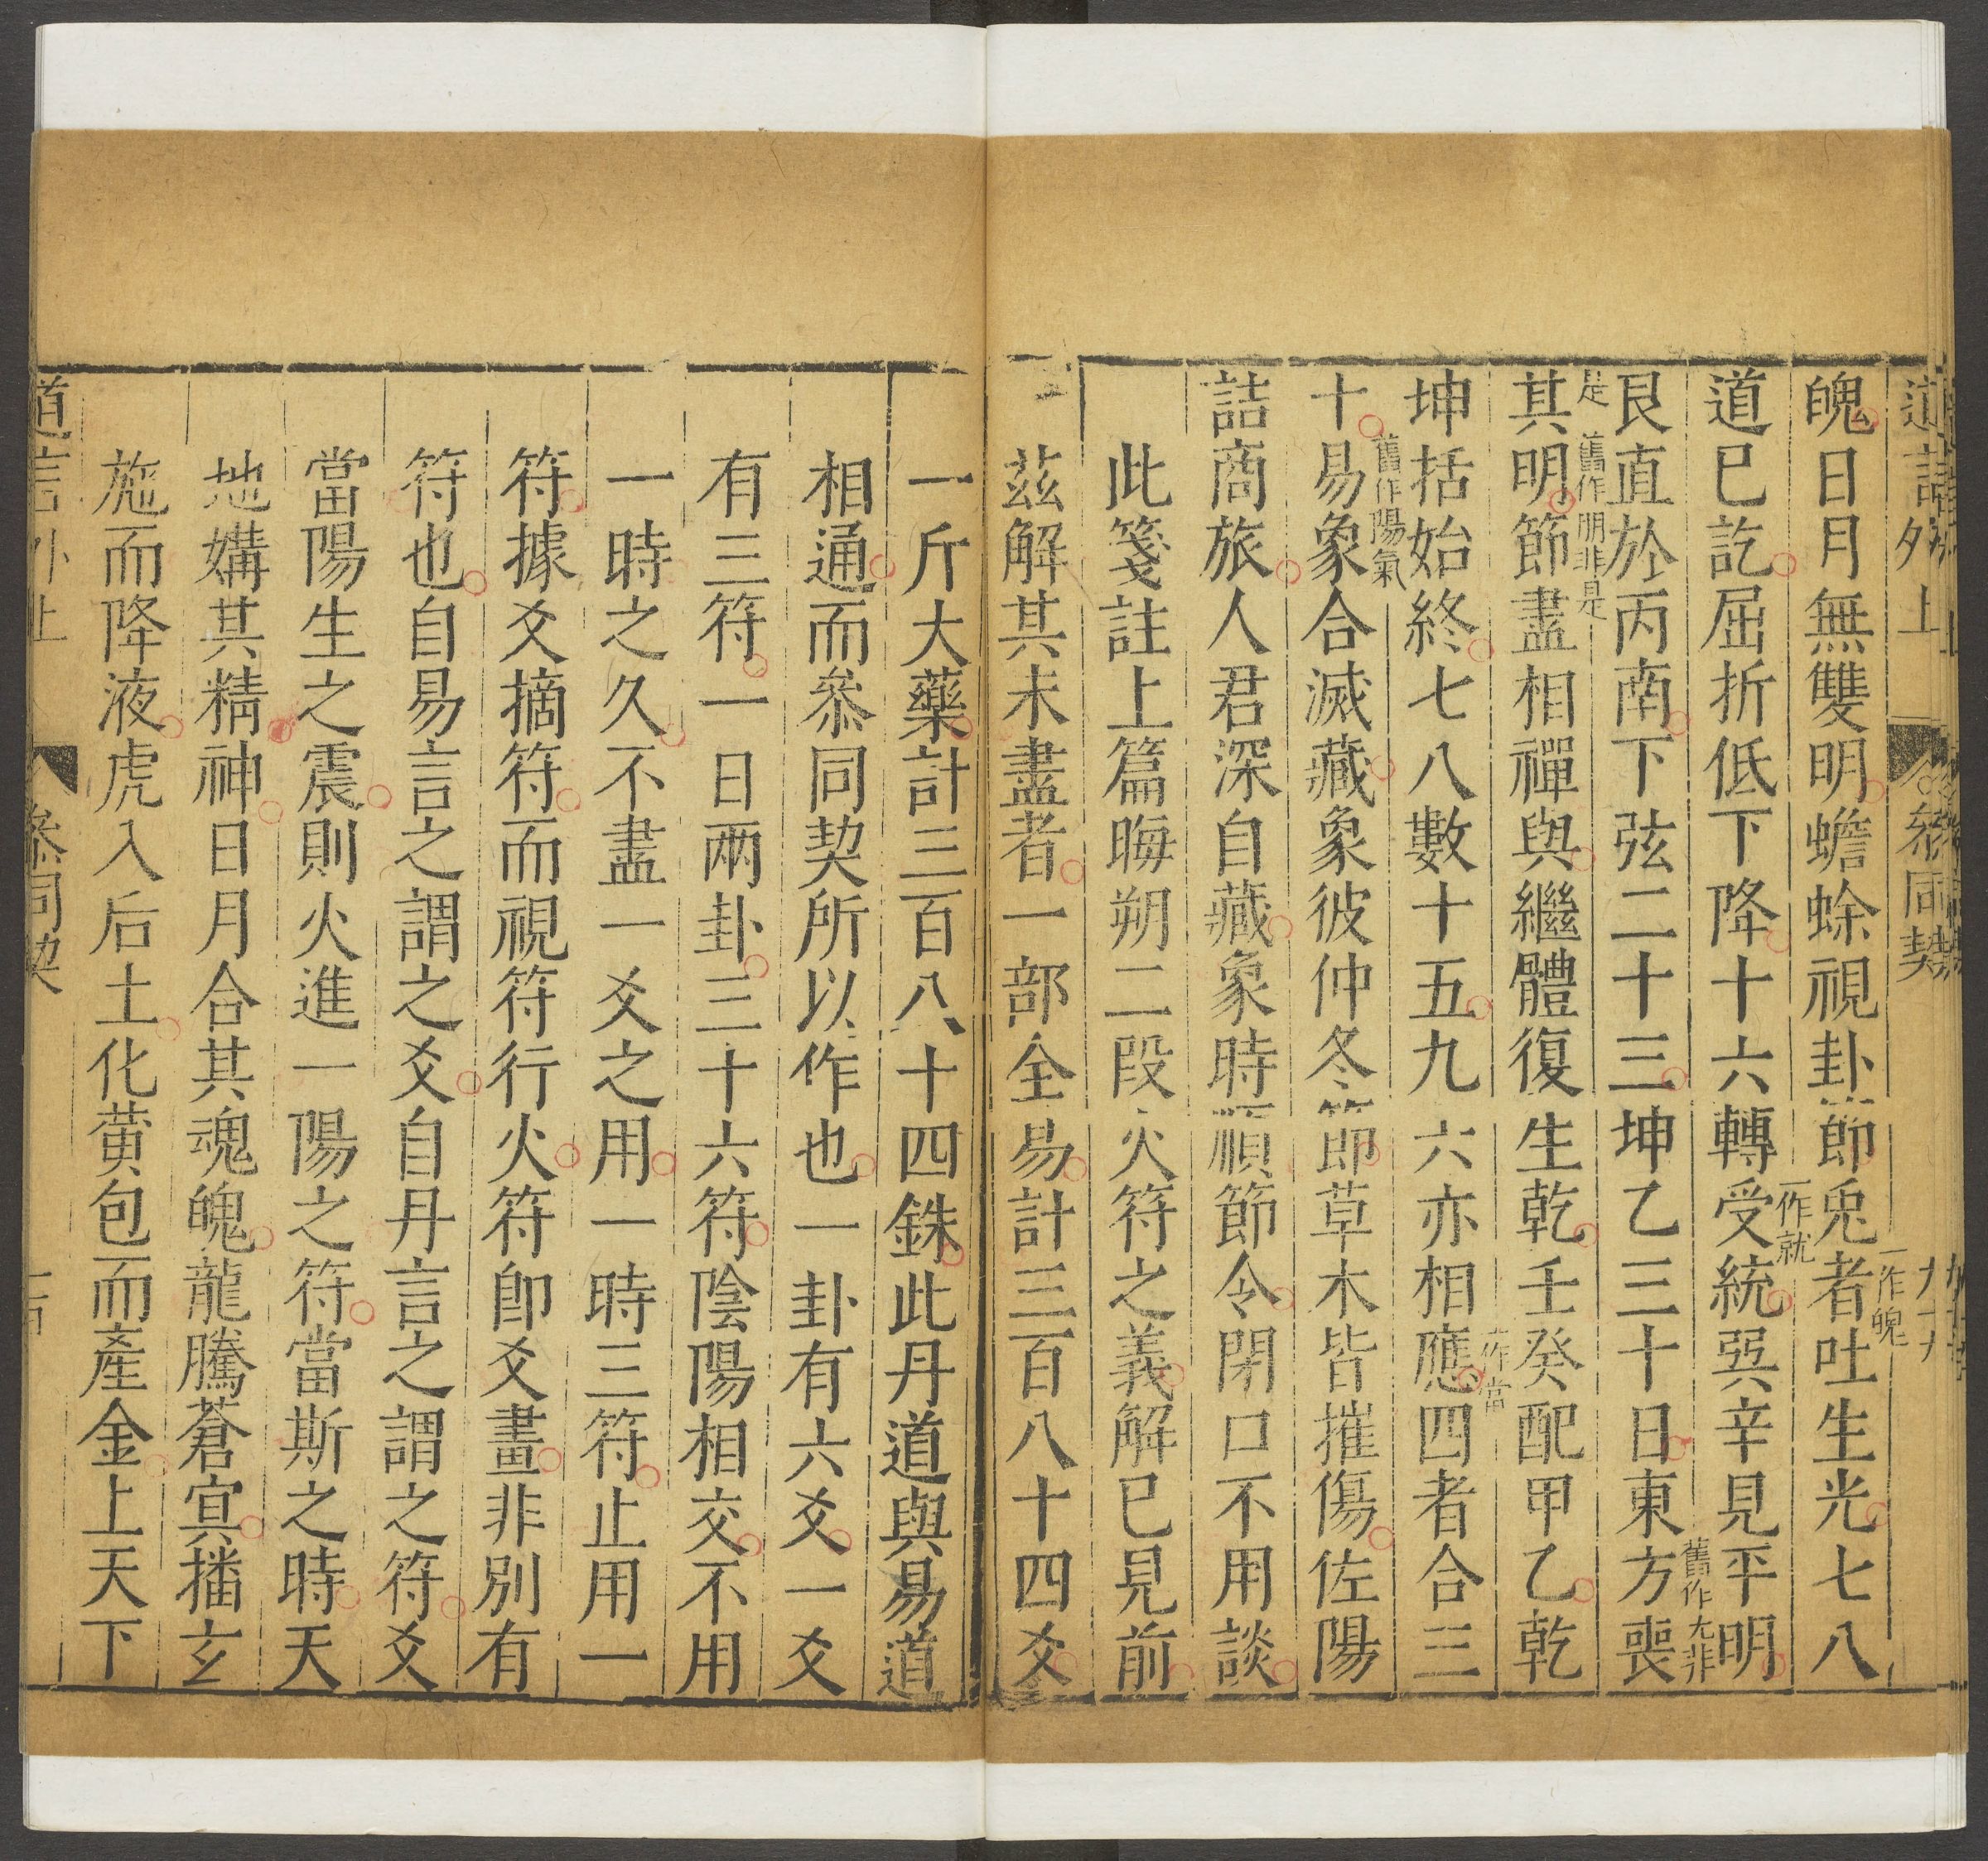 魄日月無雙明蟾蜍視卦節兎者吐生光七八
一作魄
道已訖屈折低下降十六轉受統巽辛見平明
一作就
艮直於丙南下弦二十三坤乙三十日東方喪
舊作尤非
其明節盡相禪與繼體復生乾壬癸配甲乙乾
是 舊作 朋非是
坤括始終七八數十五九六亦相應四者合三
一作當
十易象合滅藏象彼仲冬節草木皆摧傷佐陽
舊作陽氣
詰商旅人君深自藏象時順節令閉口不用談
此箋註上篇晦朔二段火符之義解已見前
茲解其未盡者一部全易計三百八十四爻
一斤大藥計三百八十四銖此丹道與易道
相通而叅同契所以作也一卦有六爻一爻
有三符一日兩卦三十六符陰陽相交不用
一時之久不盡一爻之用一時三符止用一
符據爻摘符而視符行火符卽爻畫非別有
符也自易言之謂之爻自丹言之謂之符爻
當陽生之震則火進一陽之符當斯之時天
地媾其精神日月合其魂魄龍騰蒼㝠播玄
施而降液虎入后土化黃包而產金上天下
道言外上
叅同契